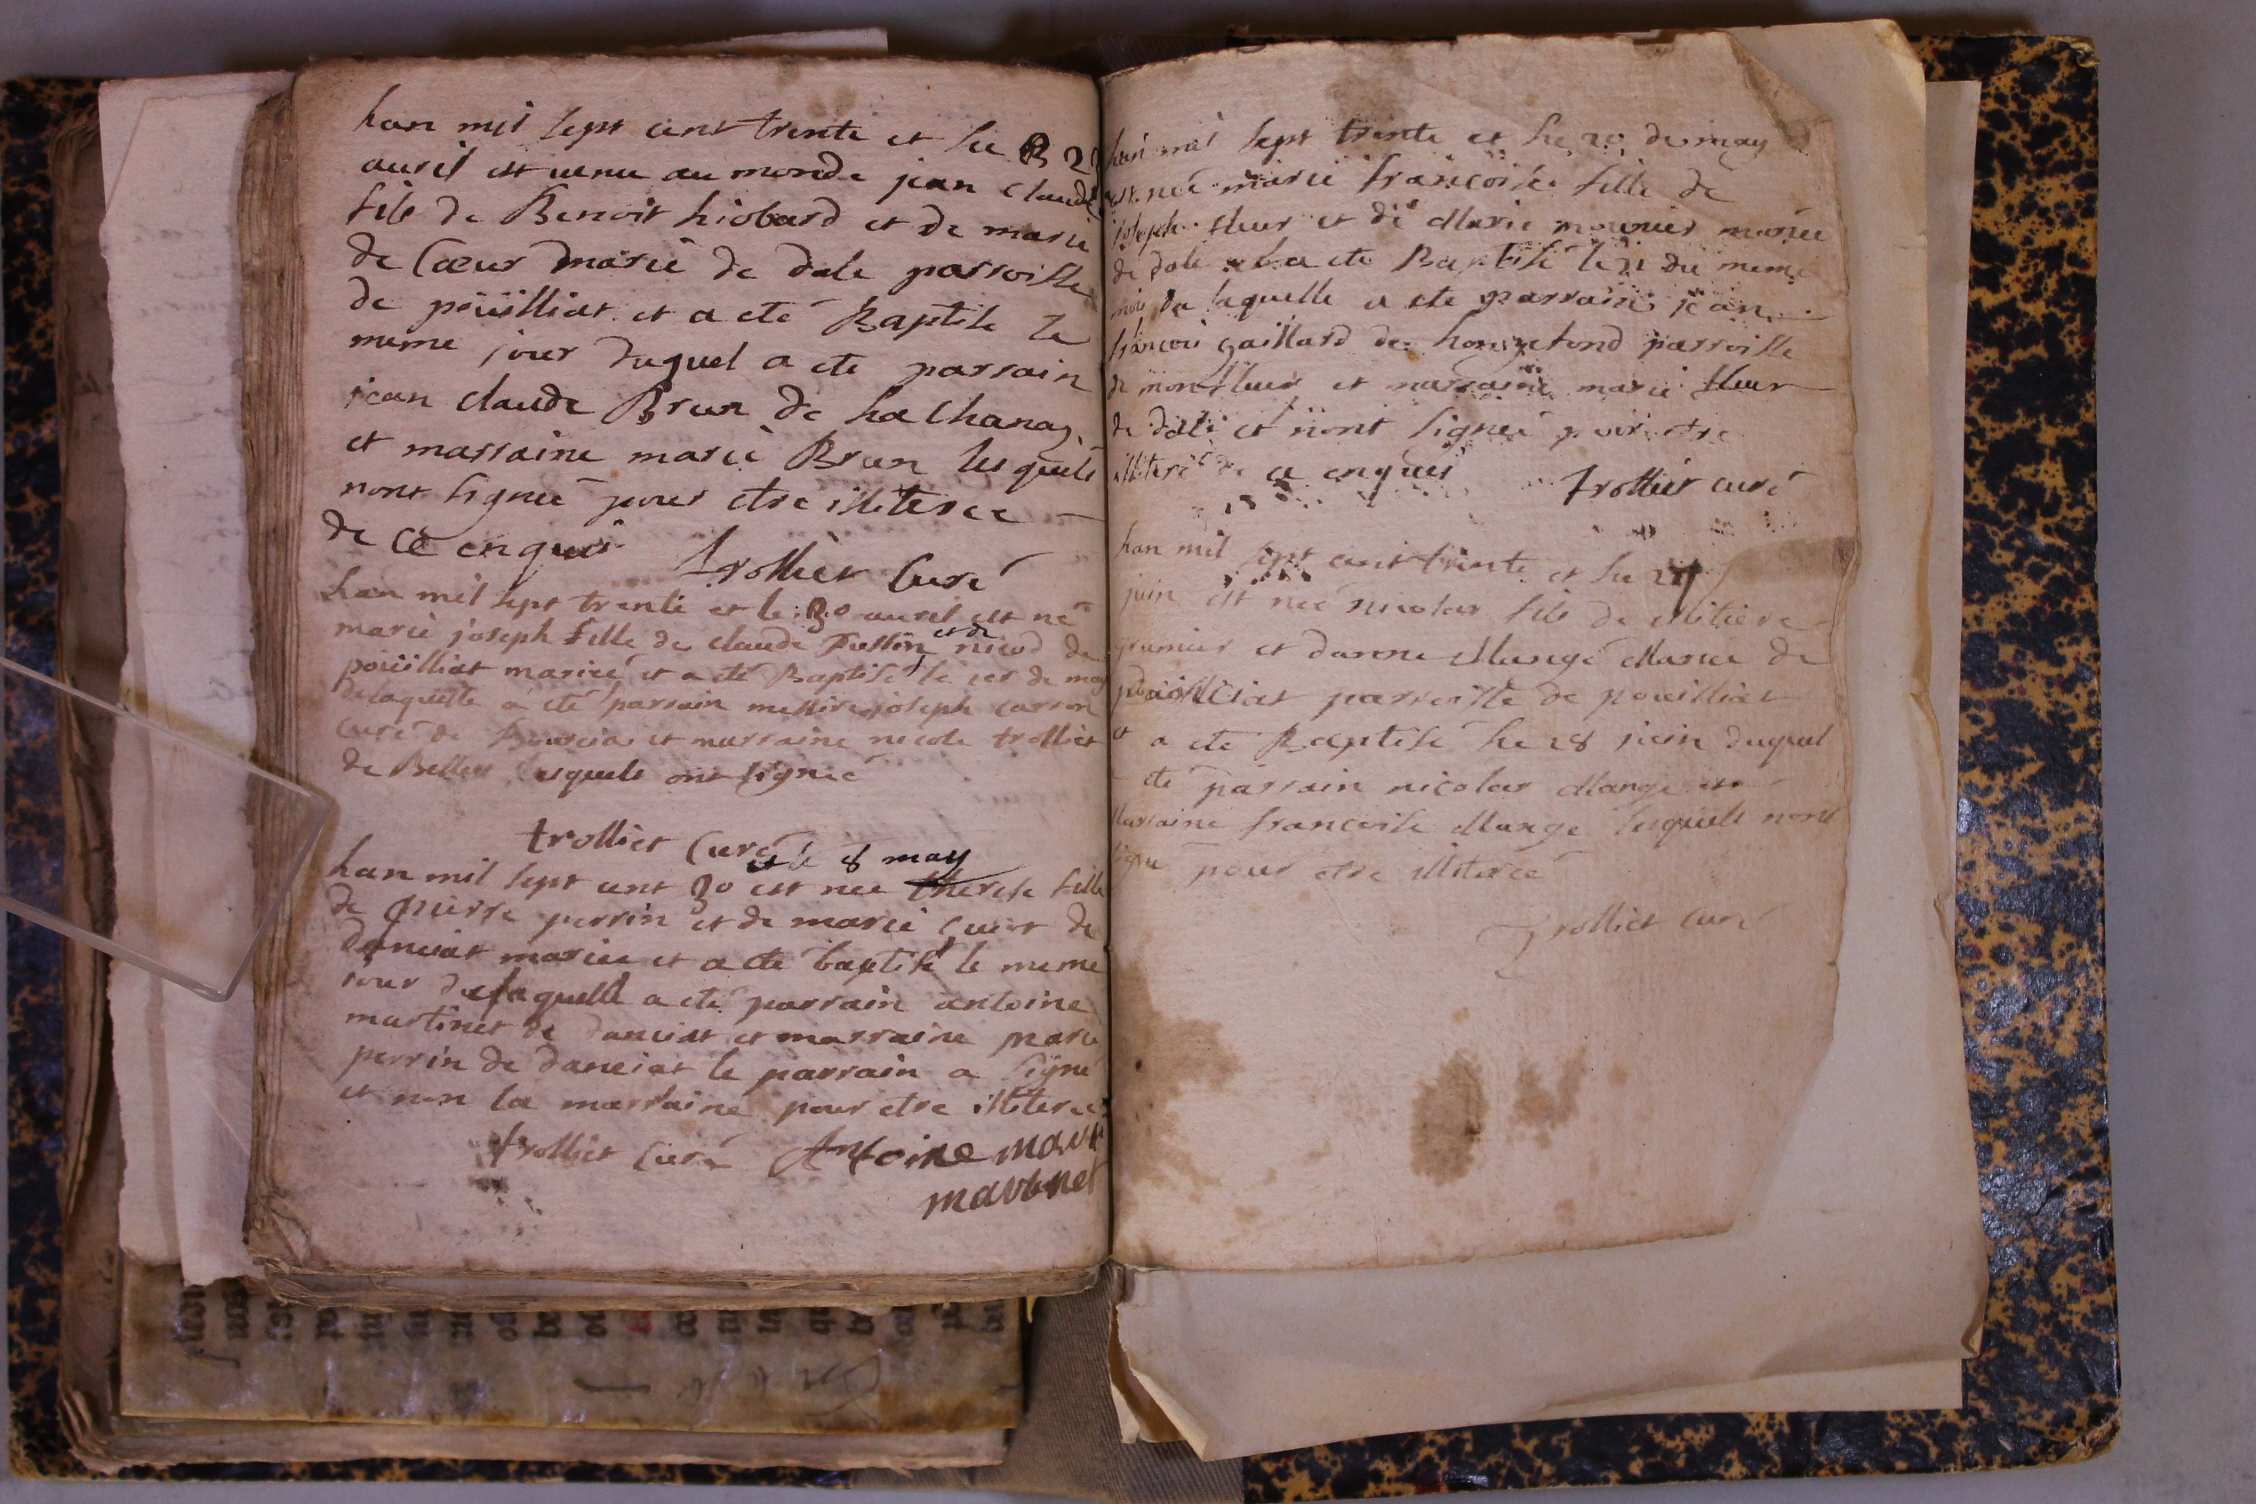 lan mil sept cent trente et le
auril est uenu au monde jean claude
fils de Benoit hiobard et de marie
de Cœur marié de dale parroisse
de poüilliat et a eté Baptise le
meme jour duquel a ete parrain
jean claude Brun de La Chanaz
et marraine marie Brun lesquels
nont signeé pour etre illiteree
de ce enquis trolliet Curé
lan mil sept trente et le 30 auril est né
marie joseph fille de claude et de nicod de
poüilliat mariee et a eté Baptisé le 1er de may
de laquelle a eté parrain messire joseph carron
Curé de et marraine nicole trolliet
de lesquels ont signeé
trolliet Curé
et le 8 may
lan mil sept cent 30 est nee therese fille
de pierre perrin et de marie de
danciat mariee et a eté baptisé le meme
jour de laquelle a eté parrain antoine
martinet de danciat et marraine marie
perrin de danciat le parrain a signé
et non la marraine pour etre illiteree
trolliet Curé Antoine
lan mil sept trente et le 20 de may
est née marie francoise fille de
joseph fleur et de Marie mounier mariee
de dale et a ete Baptisé le 21 du meme
mois de laquelle a ete parrain jean
francois gaillard de parroisse
de montfleur et marraine marie fleur
de dale et nont signeé pour etre
illiteré de ce enquis trolliet curé
lan mil sept cent trente et le 27
juin est neé nicolas fils de
grumier et danne Mange Mariee de
poüilliat parroisse de poüilliat
et a ete Baptisé le 28 juin duquel
ete parrain nicolas Mange et
Marraine francoise Mange lesquels nont
signe pour etre illitereé
Trolliet Curé